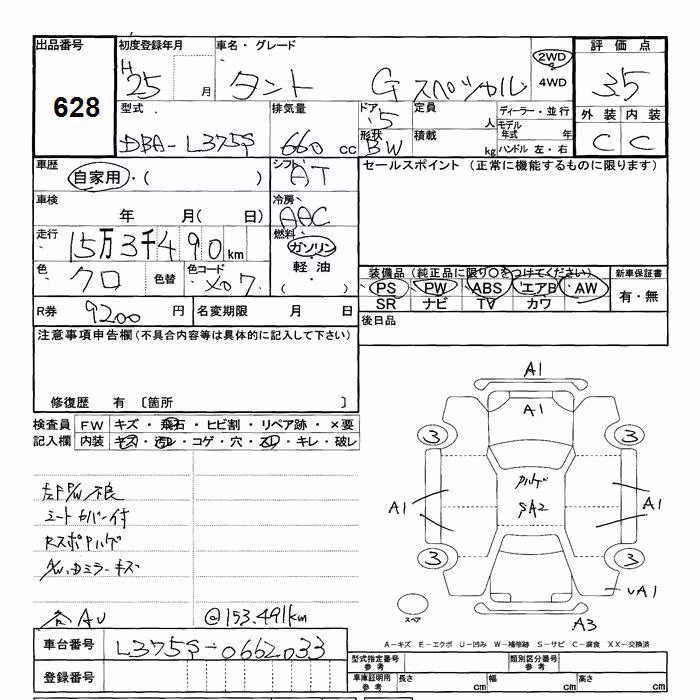 出品番号
628
初度登録年月
H25 月
車名・グレード
タント Gスペシャル
2WD
4WD
評価点
3.5
外装 内装
C C
型式
DBA-L375S
排気量
660 cc
ドア
5
形状
BW
定員
人
積載
kg
ディーラー・並行
モデル年式 年
ハンドル 左・右
車歴
自家用・( )
シフト
AT
セールスポイント (正常に機能するものに限ります)
車検
年 月( 日)
冷房
AAC
走行
15万3千490km
燃料
ガソリン
軽油
( )
色
クロ
色替
色コード
X07
装備品 (純正品に限り○をつけてください)
新車保証書
PS PW ABS エアB AW
SR ナビ TV カワ
有・無
R券
9200 円
名変期限 月 日
後日品
注意事項申告欄 (不具合内容等は具体的に記入して下さい)
修復歴 有 〔箇所
検査員
記入欄
FW キズ・飛石・ヒビ割・リペア跡・×要
内装 キズ・汚レ・コゲ・穴・スレ・キレ・破レ
左FP/W不良
シートカバー付
Rスポハゲ
A/W、Dミラーキズ
各AU
@153.491km
A1
A1
3 3
ハゲ
SA2
A1 A1
3 3
UA1
A3
スペア
A-キズ E-エクボ U-凹み W-補修跡 S-サビ C-腐食 XX-交換済
車台番号
L375S-0662033
登録番号
型式指定番号
参考
類別区分番号
参考
車庫証明用
参考
長さ cm
幅 cm
高さ cm